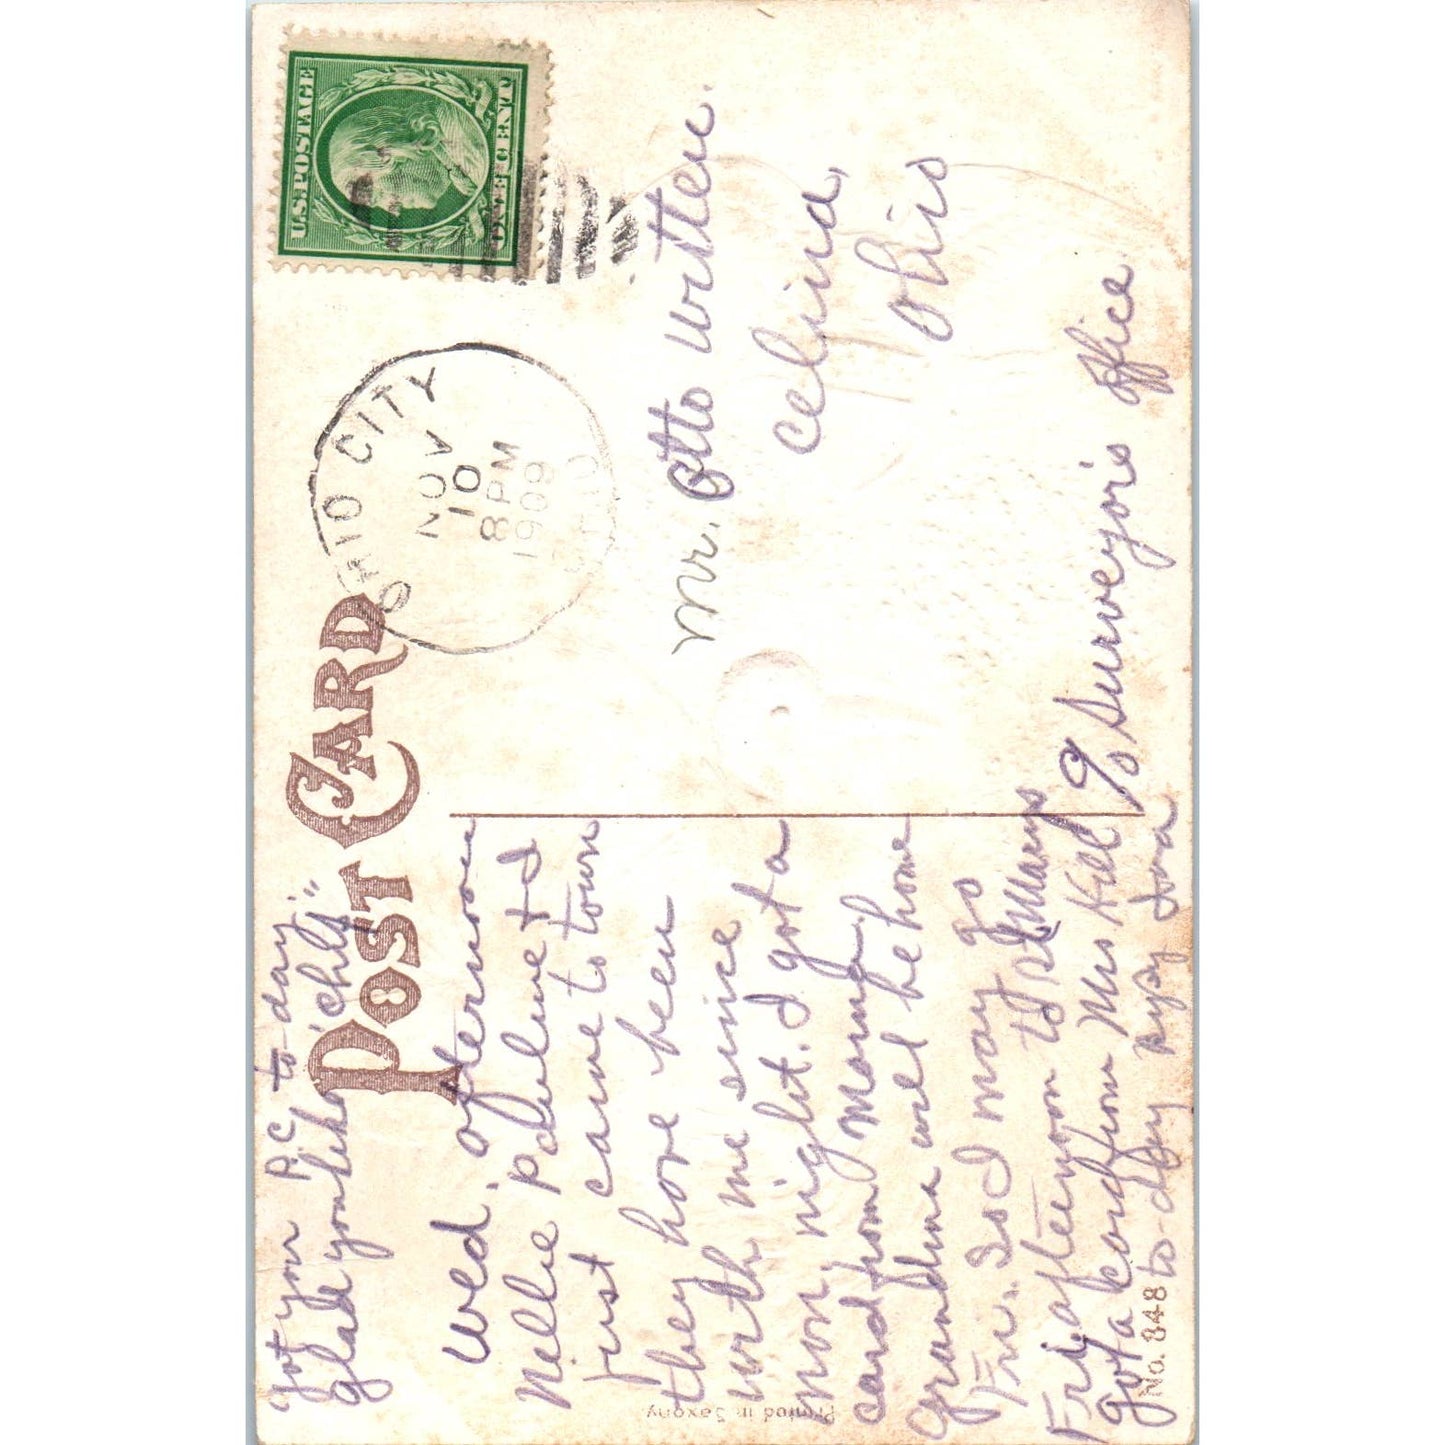 got your P.C. to-day.
glad you like "chly"
POST CARD
Wed. afternoon
Nellie Palmer & I
just came to town
they have been
with me since
mon. night. I got a
card from morning
Grandma will be home
Fri. So I may go
Fri. afternoon to St Marys
got a card from Mrs Kill
to-day
No. 848
Printed in Saxony
U.S. POSTAGE
ONE CENT
OHIO CITY
NOV
10
8 PM
1909
OHIO
Mr. Otto Written.
Celina,
Ohio
% Surveyor's Office